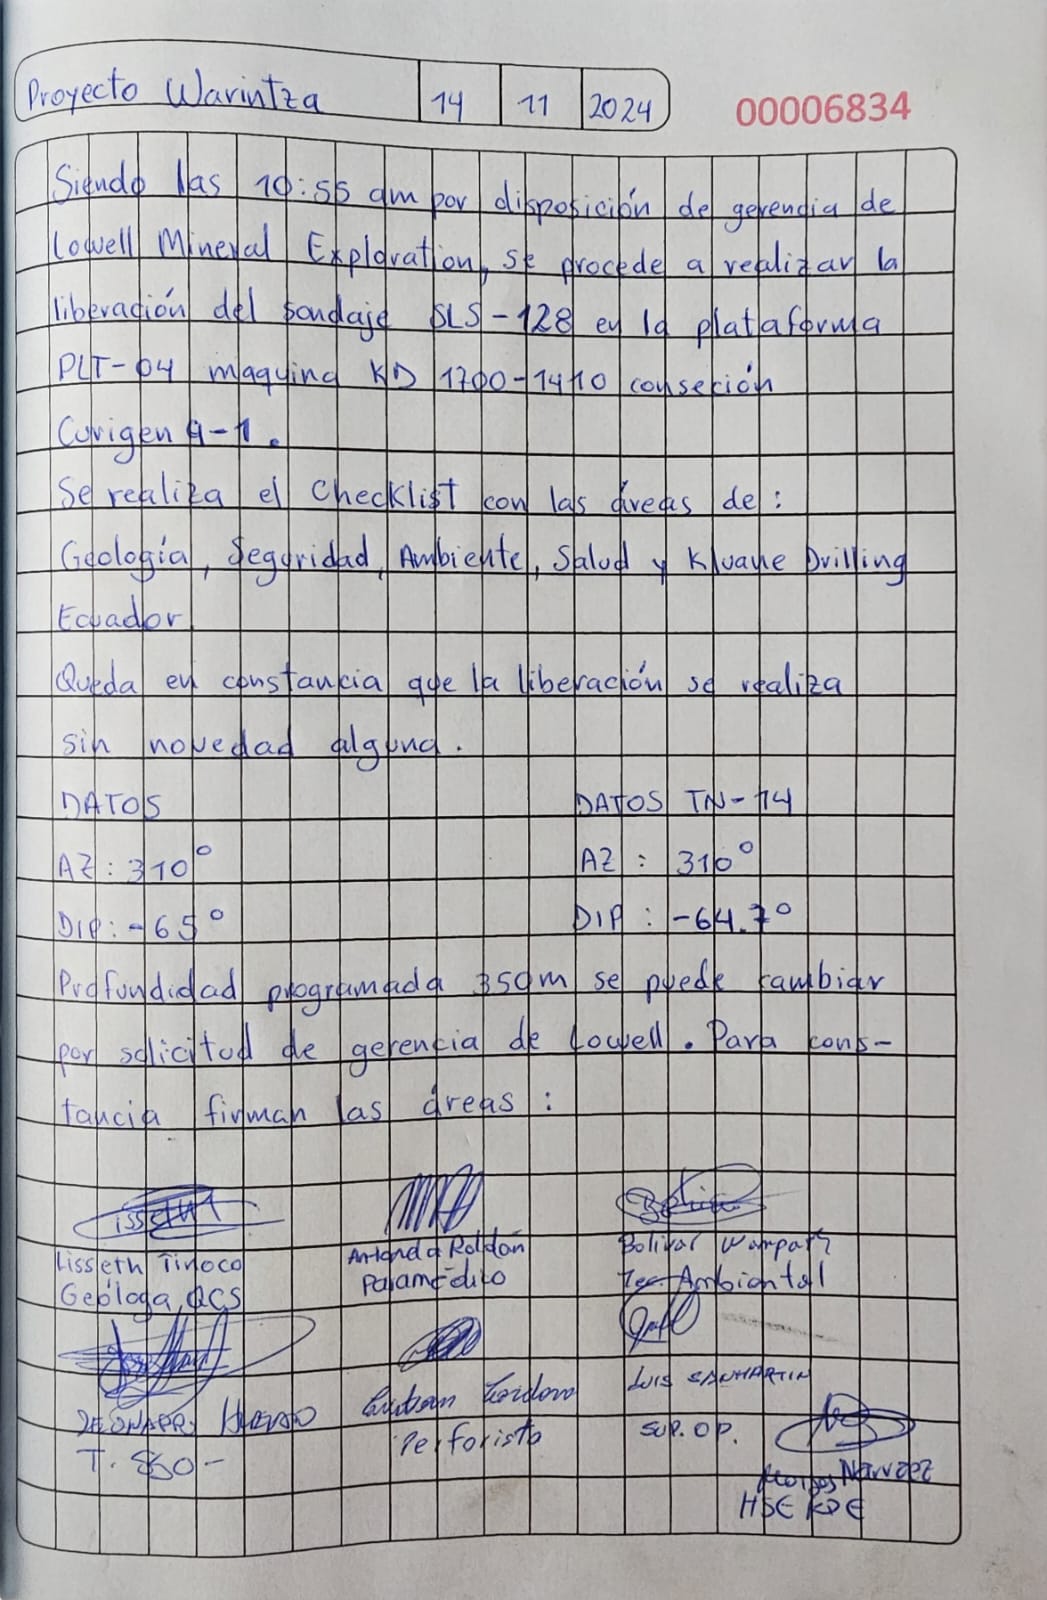 Proyecto Warintza 14 11 2024 00006834
Siendo las 10:55 am por disposición de gerencia de
Lowell Mineral Exploration, se procede a realizar la
liberación del sondaje SLS-128 en la plataforma
PLT-04 maquina KD 1700-1410 conseción
Curigen 4-1.
Se realiza el Checklist con las áreas de:
Geología, Seguridad, Ambiente, Salud y Kluane Drilling
Ecuador.
Queda en constancia que la liberación se realiza
sin novedad alguna.
DATOS DATOS TN-14
AZ: 310° AZ: 310°
DIP: -65° DIP: -64.7°
Profundidad programada 350m se puede cambiar
por solicitud de gerencia de Lowell. Para cons-
tancia firman las áreas:
Lisseth Tinoco Roldán Bolivar Wampash
Geóloga QCS Paramédico Tec Ambiental
LUIS SANMARTIN
Perforista SUP. OP.
Narvaez
HSE KDE